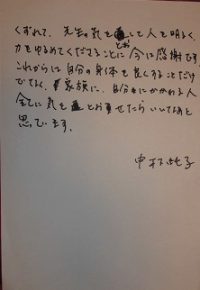 くずれて、先生の気を通して人を明るく
力をゆるめてくださることに今は感謝です。
これからは自分の身体を良くすることだけ
でなく、家族に、自分をにかかわる人
全てに気をとおせたらいいなあと
思ています。
中村純子